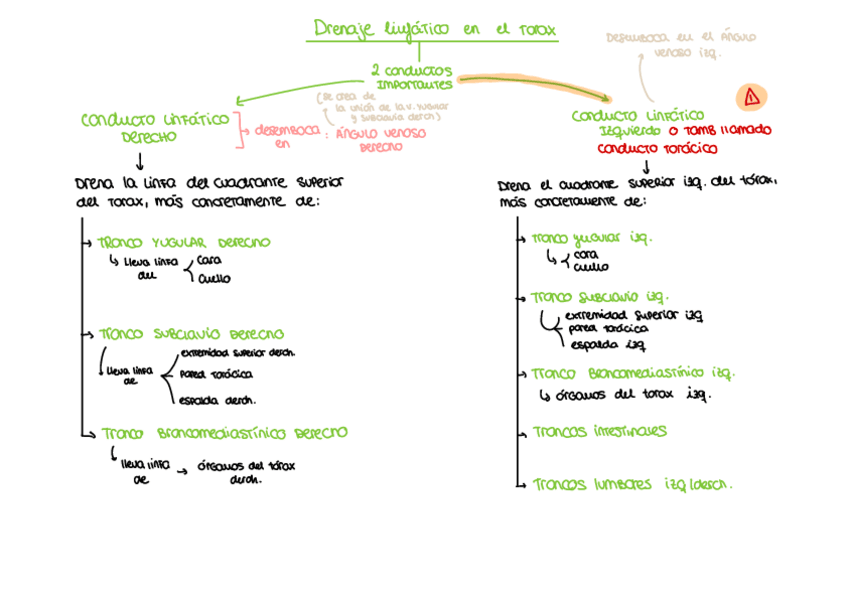 Drenaje linfático en el torax
2 conductos
IMPORTANTES
Desemboca en el Ángulo
venoso izq.
(se crea de
la unión de la v. yugular
y subclavia derch)
CONDUCTO LINFÁTICO
DERECHO
desemboca
en
: ÁNGULO VENOSO
DERECHO
CONDUCTO LINFÁTICO
IZQUIERDO O TAMB LLAMADO
CONDUCTO TORÁCICO
Drena la linfa del cuadrante superior
del torax, más concretamente de:
TRONCO YUGULAR DERECHO
lleva linfa
de
cara
cuello
TRONCO SUBCLAVIO DERECHO
lleva linfa
de
extremidad superior derch.
pared torácica
espalda derch.
TRONCO Broncomediastínico DERECHO
lleva linfa
de
órganos del torax
derch.
Drena el cuadrante superior izq. del tórax,
más concretamente de:
Tronco yugular izq.
cara
cuello
Tronco subclavio izq.
extremidad superior izq
pared torácica
espalda izq
Tronco Broncomediastínico izq.
órganos del torax izq.
Troncos intestinales
Troncos lumbares izq/derch.